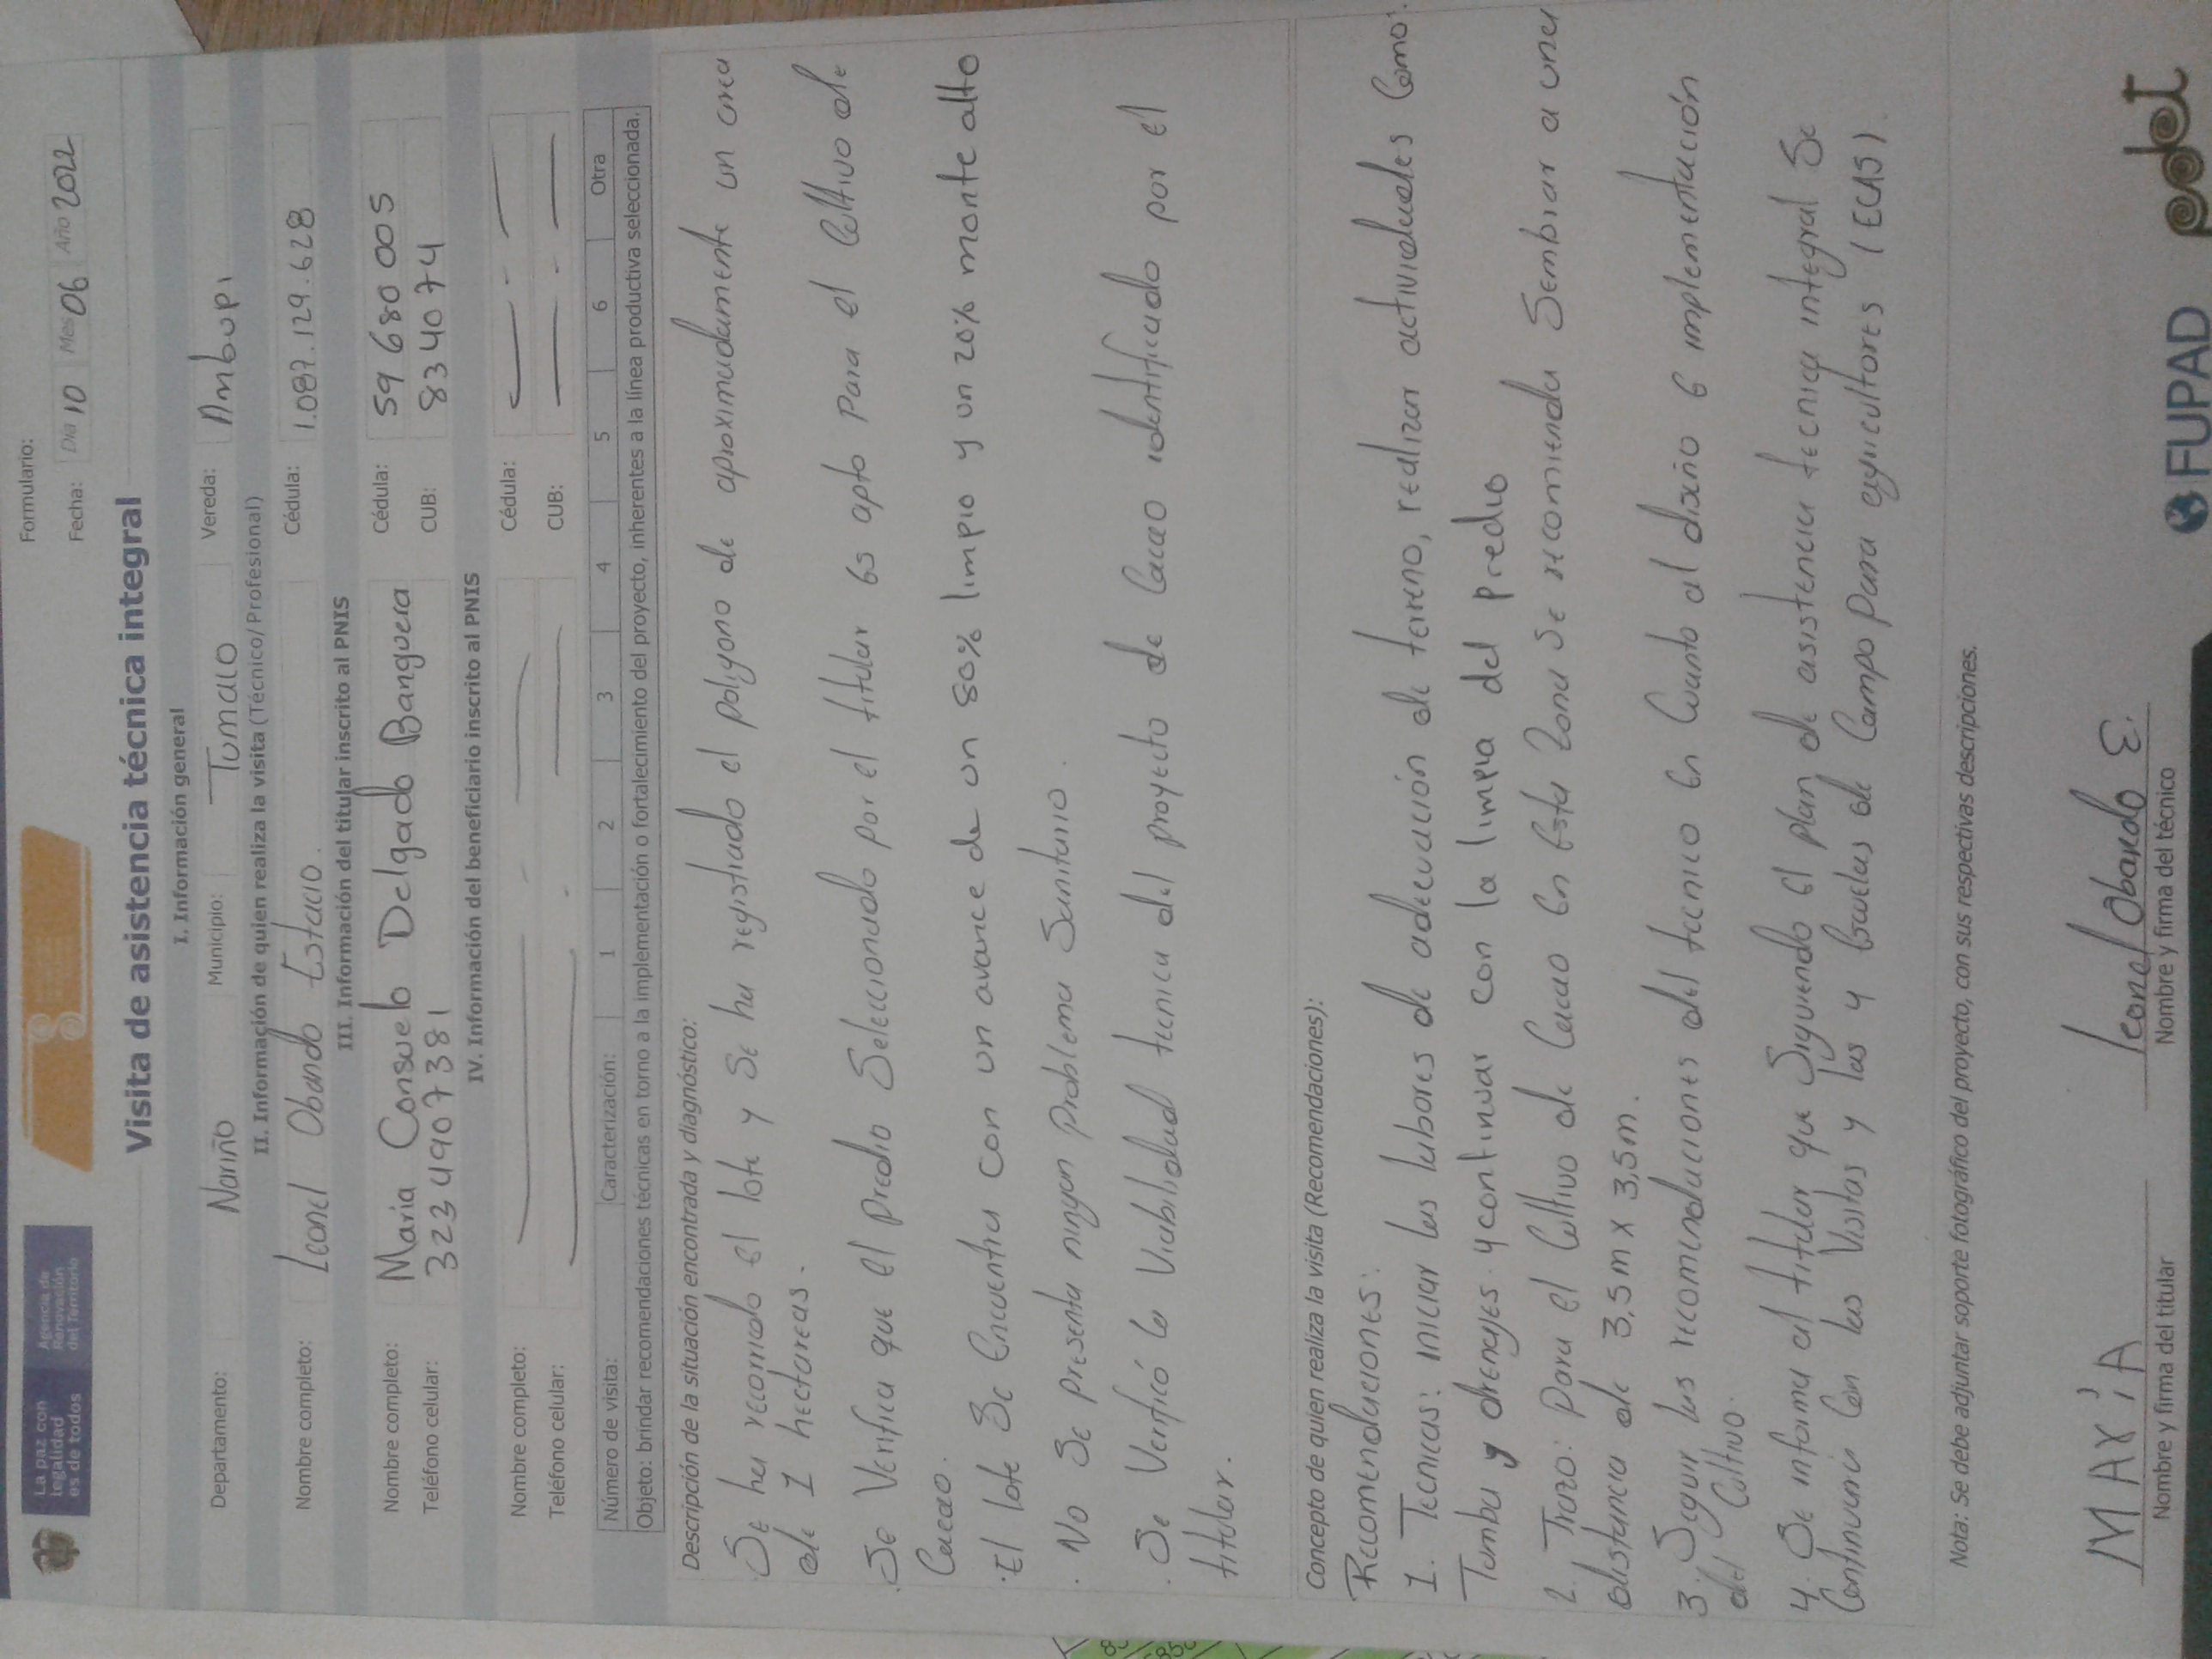 La paz con
legalidad
es de todos
Agencia de
Renovación
del Territorio
Formulario:
Fecha: Día 10 Mes 06 Año 2022
Visita de asistencia técnica integral
I. Información general
Departamento: Nariño Municipio: Tumaco Vereda: Ambupi
II. Información de quien realiza la visita (Técnico/Profesional)
Nombre completo: Leonel Obando Estacio. Cédula: 1.087.129.628
III. Información del titular inscrito al PNIS
Nombre completo: Maria Consuelo Delgado Banguera Cédula: 59 680 005
Teléfono celular: 3234907381 CUB: 834074
IV. Información del beneficiario inscrito al PNIS
Nombre completo: Cédula:
Teléfono celular: CUB:
Número de visita: Caracterización: 1 2 3 4 5 6 Otra
Objeto: brindar recomendaciones técnicas en torno a la implementación o fortalecimiento del proyecto, inherentes a la línea productiva seleccionada.
Descripción de la situación encontrada y diagnóstico:
. Se ha recorrido el lote y Se ha registrado el poligono de aproximadamente un area
de 1 hectareas.
. Se Verifica que el Predio Seleccionado por el titular es apto Para el Cultivo de
Cacao.
. El lote Se Encuentra con un avance de un 80% limpio y un 20% monte alto
. No Se presenta ningun Problema Sanitario.
. Se Verificó la Viabilidad tecnica del proyecto de Cacao identificado por el
titular.
Concepto de quien realiza la visita (Recomendaciones):
Recomendaciones:
1. Tecnicas: iniciar las labores de adecuación de terreno, realizar actividades Como:
Tumba y drenajes. y continuar con la limpia del predio
2. Trazo: Para el Cultivo de Cacao en esta Zona Se recomienda Sembrar a una
distancia de 3,5m x 3,5m.
3. Seguir las recomendaciones del tecnico en Cuanto al diseño e implementación
del Cultivo.
4. Se informa al titular que Siguiendo el plan de asistencia tecnica integral Se
Continuaria Con las Visitas y las 4 Escuelas de Campo Para agricultores (ECAS).
Nota: Se debe adjuntar soporte fotográfico del proyecto, con sus respectivas descripciones.
MARiA
Nombre y firma del titular
Leonel Obando E.
Nombre y firma del técnico
FUPAD
pdet